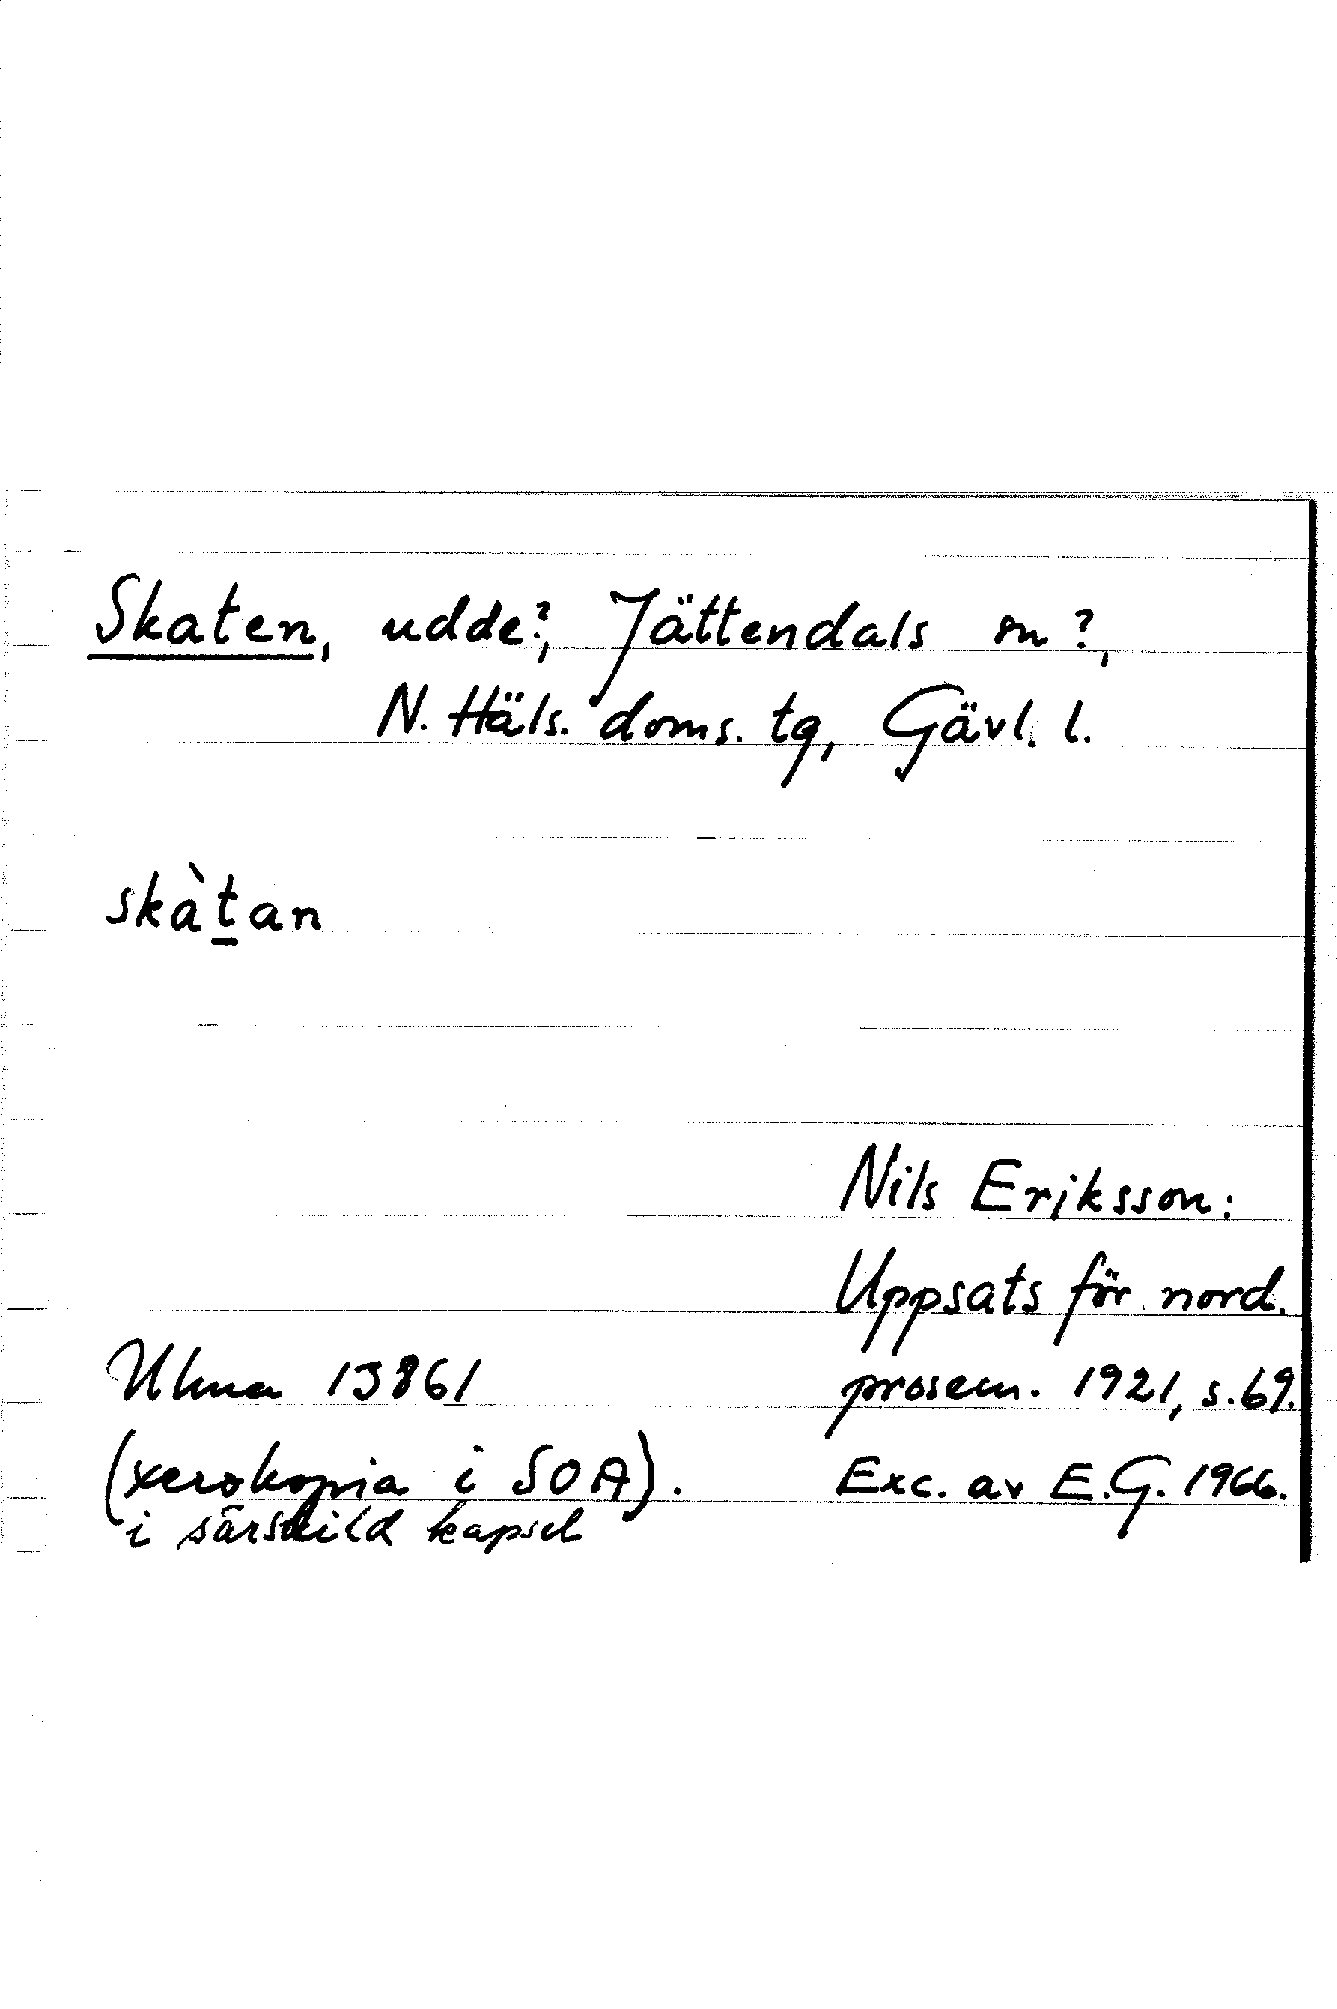 Skaten, udde?, Jättendals sn?,
N. Häls. doms. tg, Gävl. l.
skàt̲an
Nils Eriksson:
Uppsats för nord.
prosem. 1921, s. 69.
Exc. av E.G. 1966.
Ulma 13861
(xerokopia i SOA).
i särskild kapsel